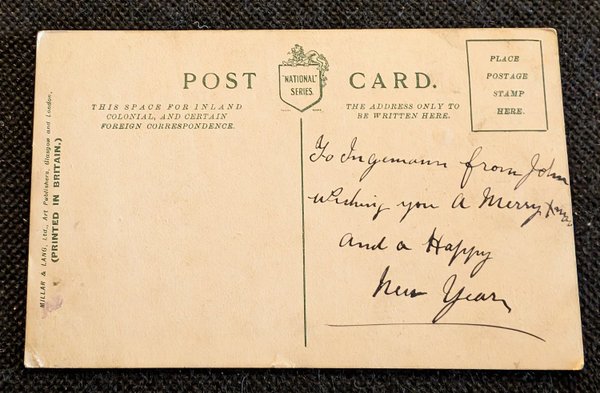 POST CARD.
"NATIONAL"
SERIES.
PLACE
POSTAGE
STAMP
HERE.
THIS SPACE FOR INLAND
COLONIAL, AND CERTAIN
FOREIGN CORRESPONDENCE.
THE ADDRESS ONLY TO
BE WRITTEN HERE.
MILLAR & LANG, Ltd., Art Publishers, Glasgow and London,
(PRINTED IN BRITAIN.)
To Ingemann from John
wishing you A Merry Xmas
and a Happy
New Year